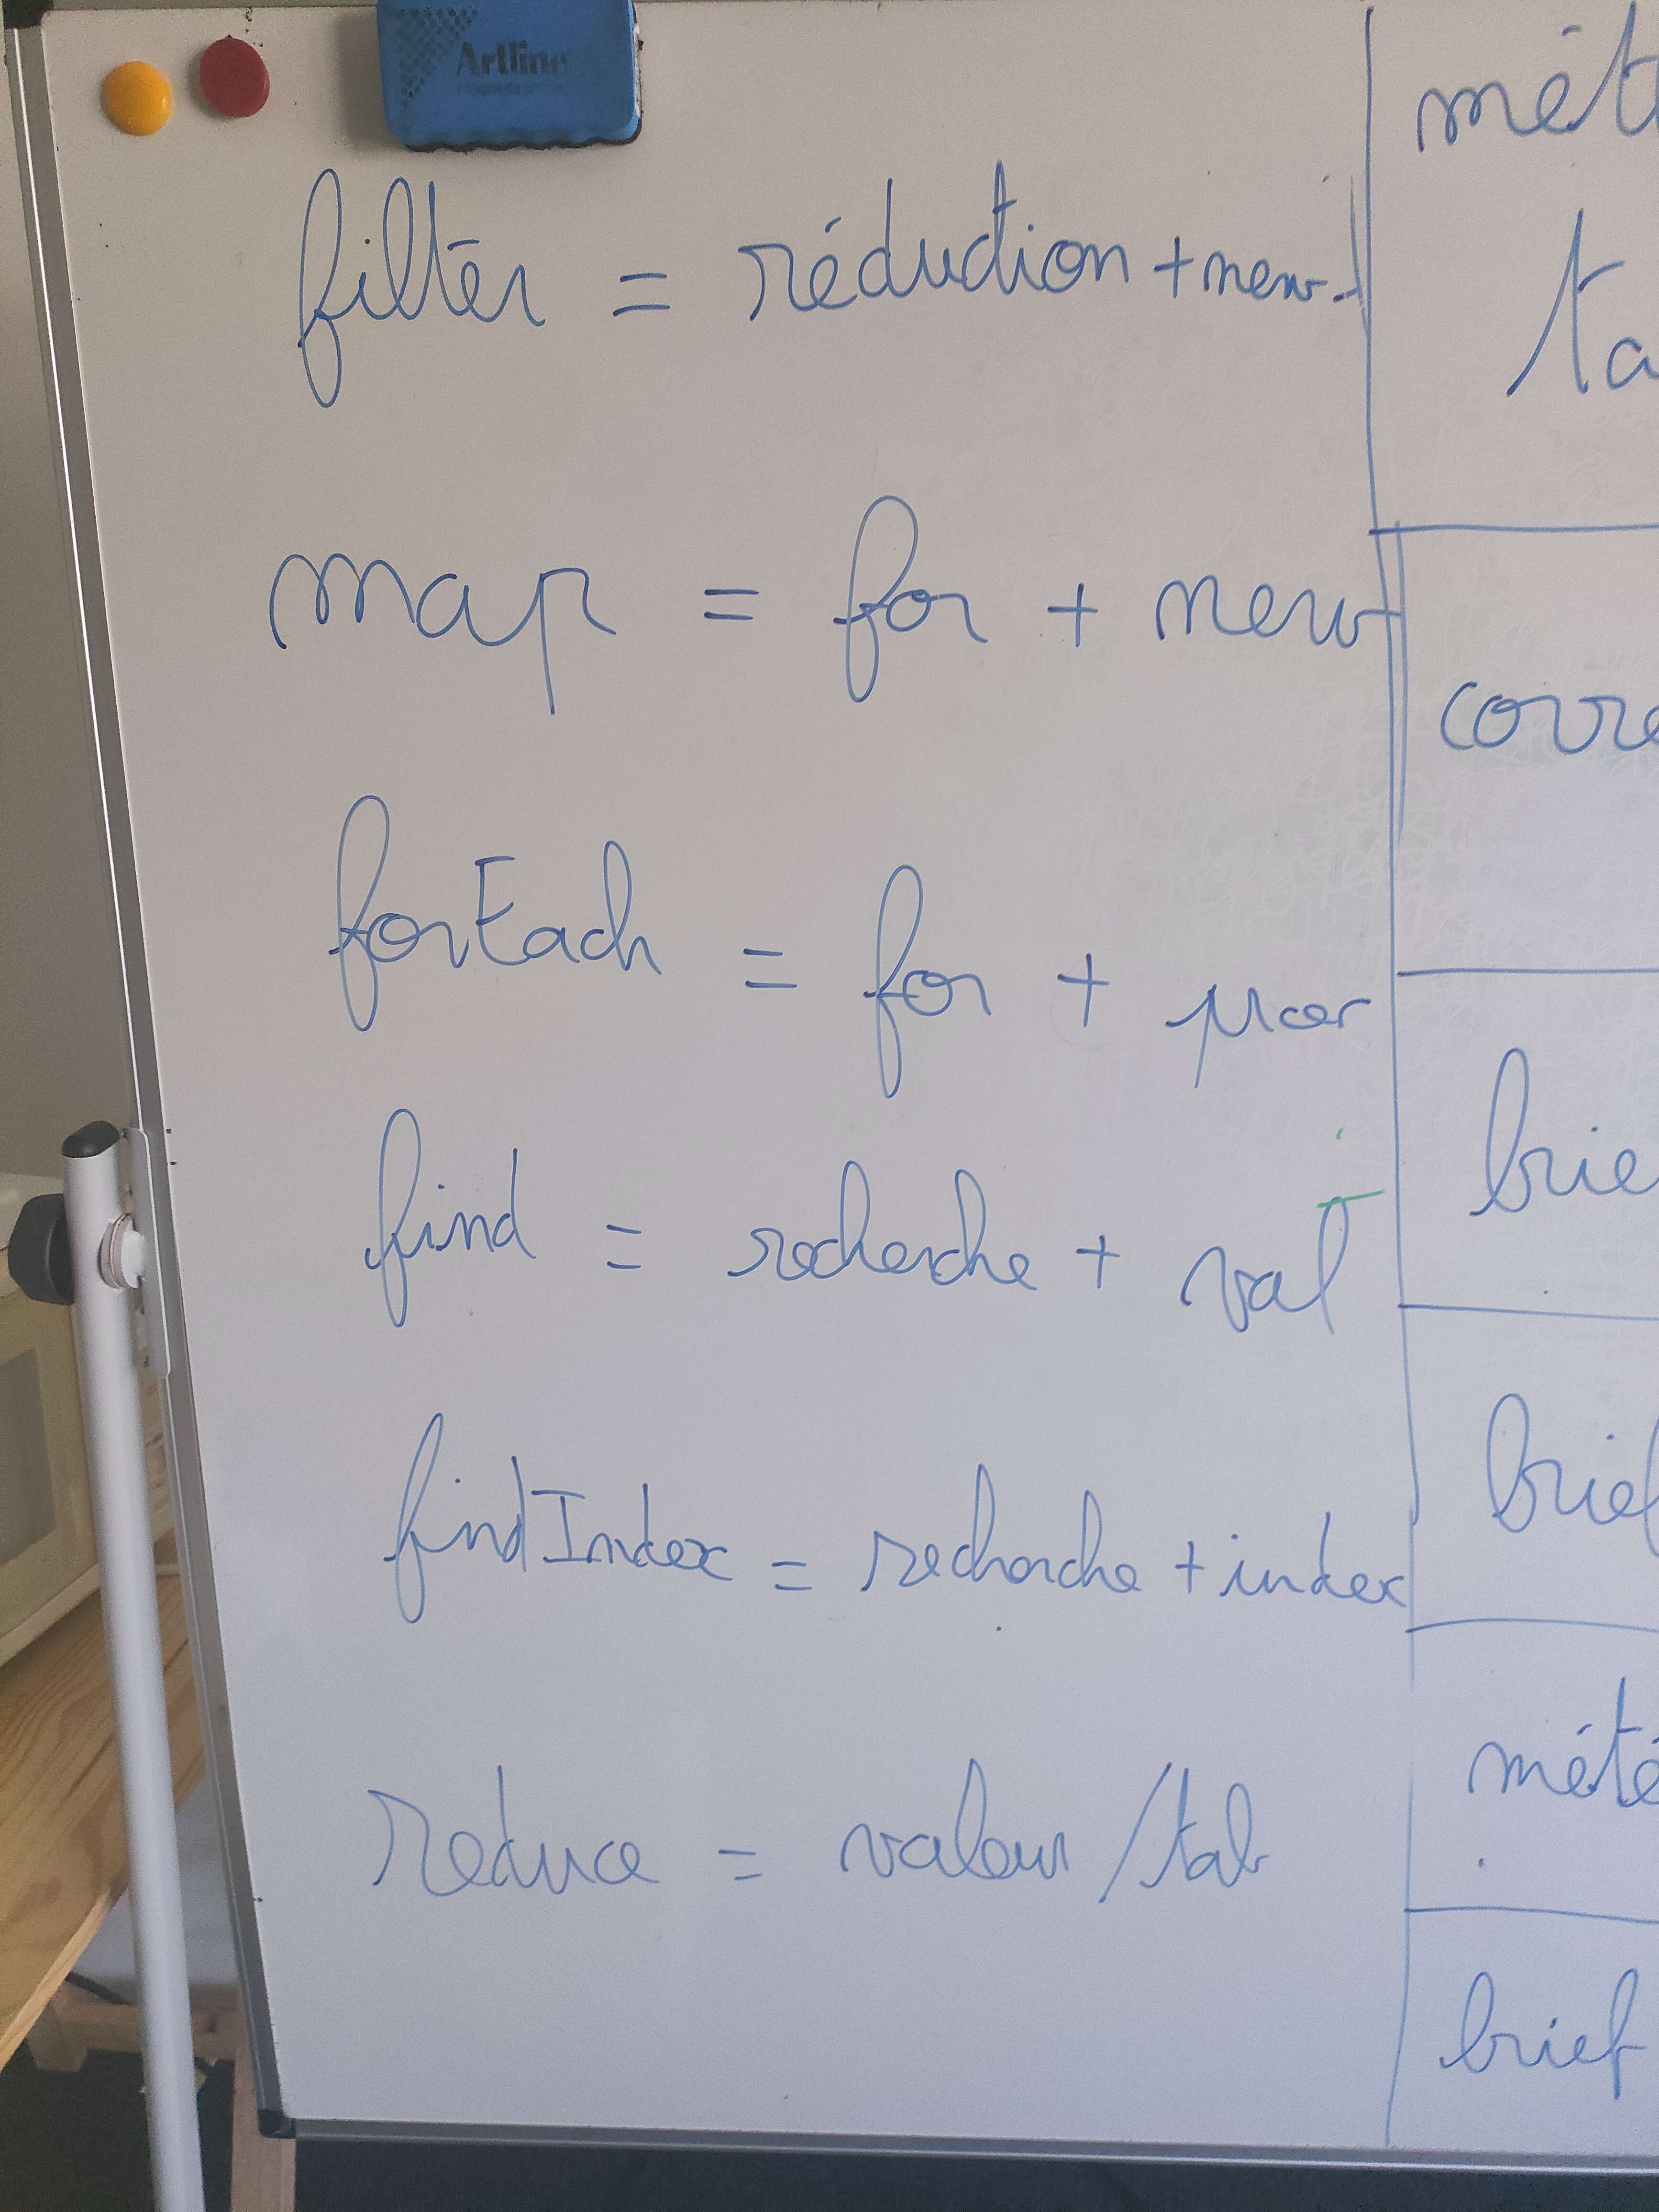 Artline
filter = réduction + new
map = for + new
forEach = for +
find = recherche + val
findIndex = recherche + index
reduce = valeur / tab
mét
ta
corre
brie
brief
méte
brief